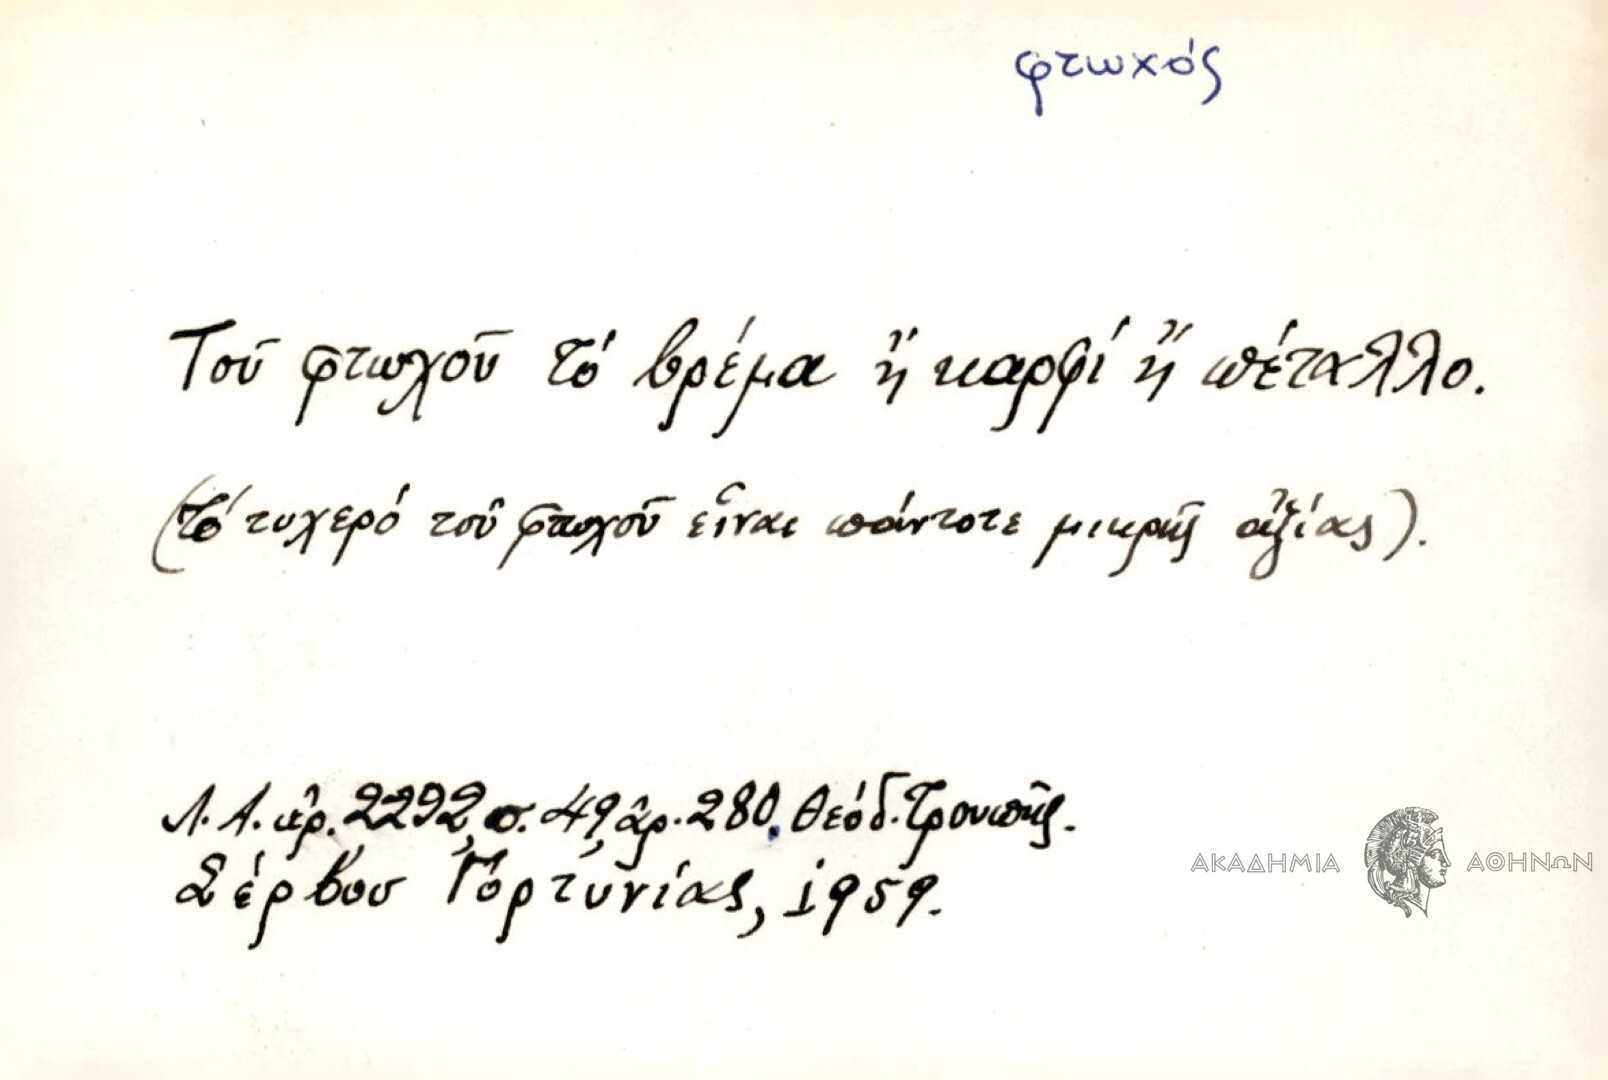 φτωχός
Τοῦ φτωχοῦ τό βρέμα ἤ καρφί ἤ πέταλλο.
(Τό τυχερό τοῦ φτωχοῦ εἶναι πάντοτε μικρῆς ἀξίας).
Λ.Α. ἀρ. 2292, σ. 49, ἀρ. 280, Θεόδ. Τρουπῆς.
Σέρβου Γορτυνίας, 1959.
ΑΚΑΔΗΜΙΑ ΑΘΗΝΩΝ